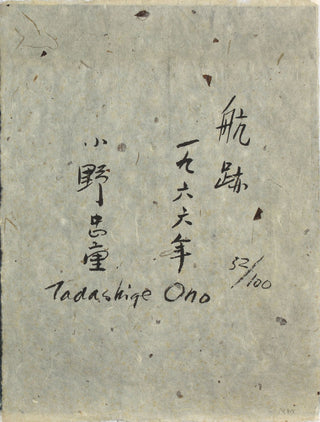 航跡
一九六六年
小野忠重
32/100
Tadashige Ono